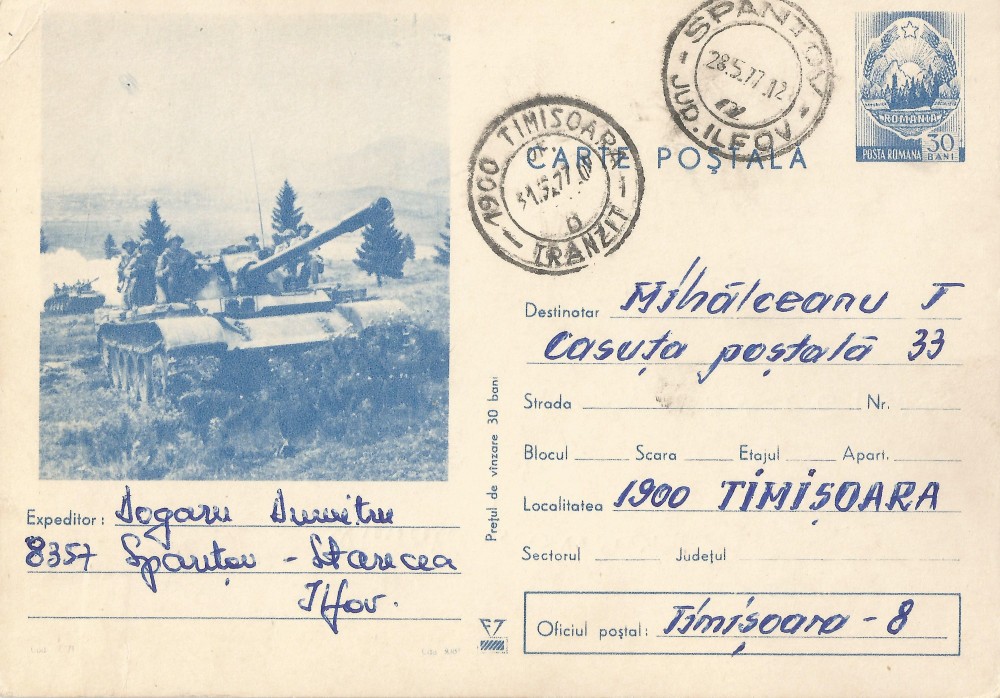 SPANTOV
28.5.77.12
JUD. ILFOV
ROMANIA
POSTA ROMANA 30 BANI
1900 TIMISOARA 1
31.5.77.
TRANZIT
CARTE POŞTALĂ
Destinatar Mihălceanu T
Casuța poștală 33
Strada Nr.
Blocul Scara Etajul Apart.
Localitatea 1900 TIMIȘOARA
Sectorul Judeţul
Oficiul poştal: Timișoara - 8
Preţul de vînzare 30 bani
Expeditor: Dogaru Dumitru
8357 Spanțov -
Ilfov.